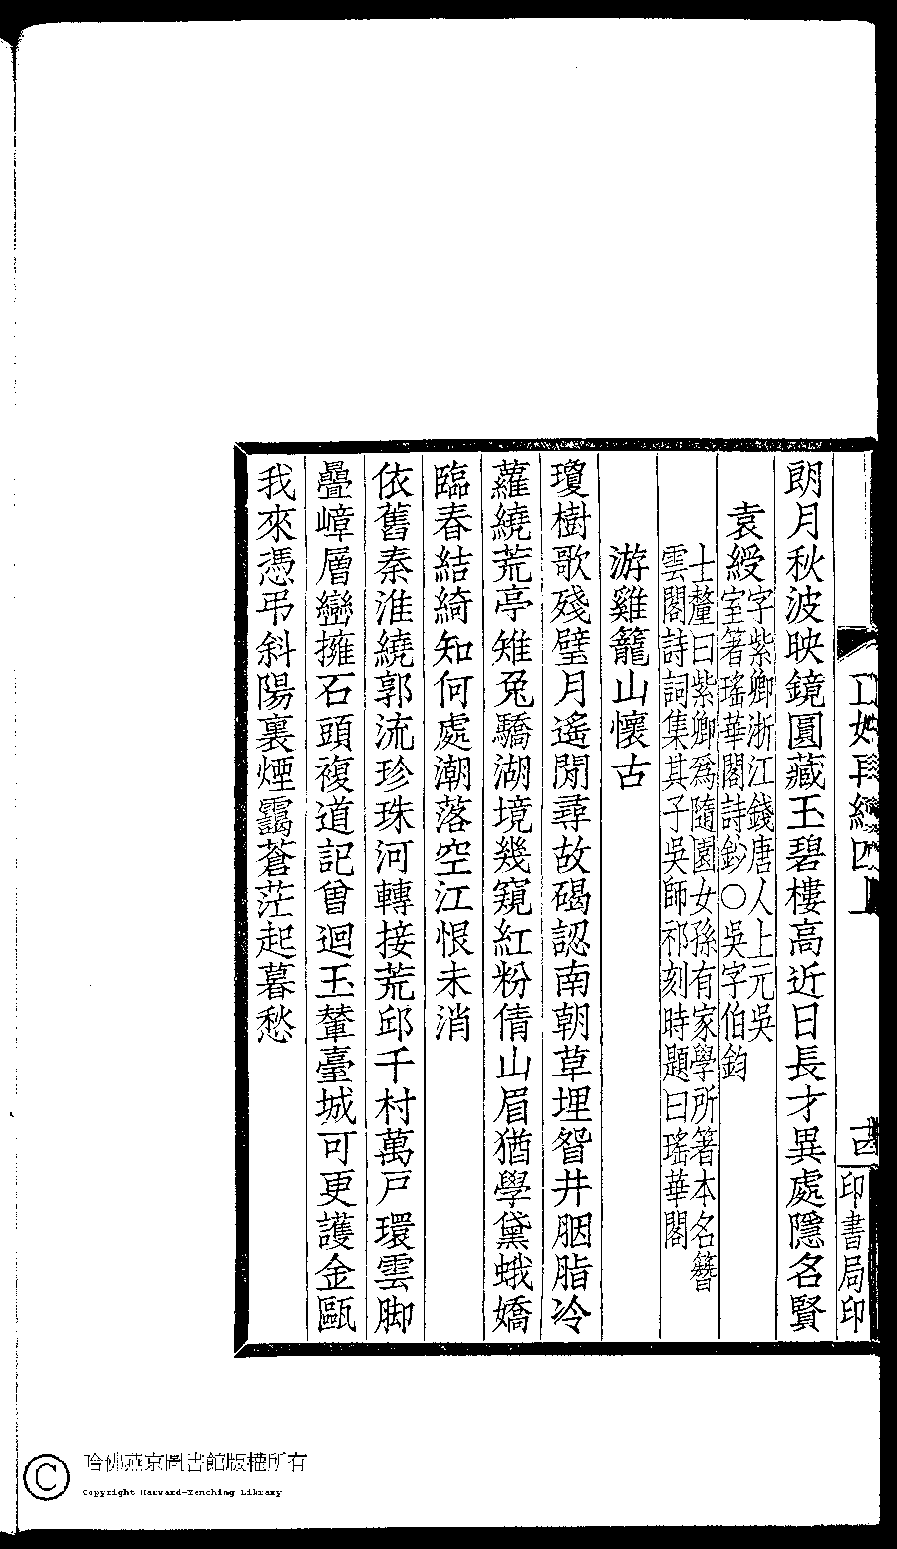 朗月秋波映鏡圓藏玉碧樓高近日長才異處隱名賢
袁綬字紫卿浙江錢唐人上元吳
室箸瑤華閣詩鈔○吳字伯鈞
士釐曰紫卿爲隨園女孫有家學所箸本名簪
雲閣詩詞集其子吳師祁刻時題曰瑤華閣
游雞籠山懷古
瓊樹歌殘璧月遙閒尋故碣認南朝草埋眢井胭脂冷
蘿繞荒亭雉兔驕湖境幾窺紅粉倩山眉猶學黛蛾嬌
臨春結綺知何處潮落空江恨未消
依舊秦淮繞郭流珍珠河轉接荒邱千村萬戶環雲脚
疊嶂層巒擁石頭複道記曾迴玉輦臺城可更護金甌
我來憑弔斜陽裏煙靄蒼茫起暮愁
印書局印
哈佛燕京圖書館版權所有
Copyright Harvard-Yenching Library